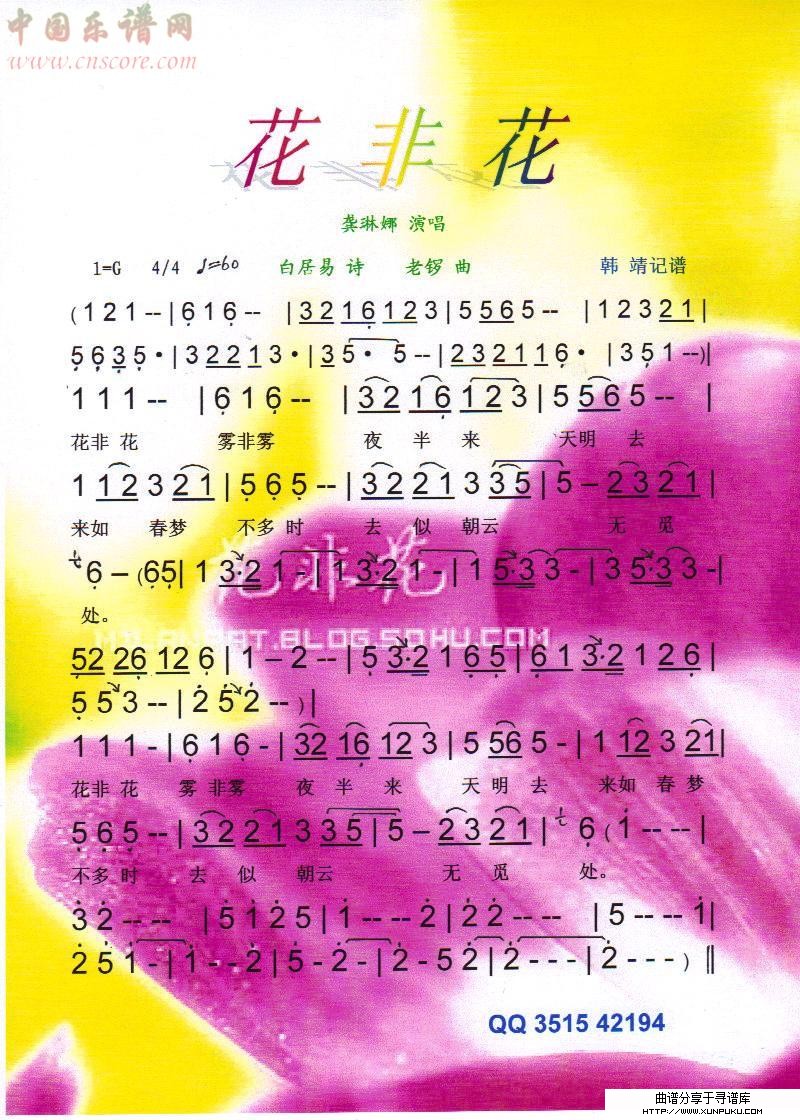 中国乐谱网
www.cnscore.com
花非花
龚琳娜 演唱
1=G 4/4 ♩=60 白居易 诗 老锣 曲 韩 靖记谱
(1 2 1 -- | 6̣ 1 6̣ -- | 3 2 1 6̣ 1 2 3 | 5 5 6 5 -- | 1 2 3 2 1 |
5̣ 6̣ 3̣ 5̣ · | 3 2 2 1 3 · | 3 5 · 5 -- | 2 3 2 1 1 6̣ · | 3 5̣ 1 --)|
1 1 1 -- | 6̣ 1 6̣ -- | 3 2 1 6̣ 1 2 3 | 5 5 6 5 -- |
花非 花 雾非雾 夜 半 来 天明 去
1 1 2 3 2 1 | 5̣ 6̣ 5̣ -- | 3 2 2 1 3 3 5 | 5 – 2 3 2 1 |
来如 春梦 不多时 去 似 朝云 无 觅
6̣ – (6̣5̣| 1 3·2 1 - | 1 3·2 1 - | 1 5·3 3 - | 3 5·3 3 -|
处。
花非花
MYLANBT.BLOG.SOHU.COM
5̣2 26̣ 12 6̣ | 1 – 2 -- | 5̣ 3·2 1 6̣5̣ | 6̣1 3·2 1 26̣ |
5̣ 5 3 -- | 2̇ 5̇ 2̇ -- )|
1 1 1 - | 6̣ 1 6̣ - | 32 16̣ 12 3 | 5 56 5 - | 1 12 3 21|
花非 花 雾 非雾 夜 半 来 天 明 去 来如 春 梦
5̣ 6̣ 5̣ -- | 3 2 2 1 3 3 5 | 5 – 2 3 2 1 | 6̣ (1̇ -- -- |
不多 时 去 似 朝云 无 觅 处。
3̇ 2̇ -- -- | 5 1̇ 2̇ 5 | 1̇ -- -- 2̇ | 2̇ 2̇ -- -- | 5 -- -- 1̇|
2̇ 5 1̇ - | 1̇ - - 2̇ | 5 - 2̇ - | 2̇ - 5 2̇ | 2̇ - - - | 2̇ - - - ) ‖
QQ 3515 42194
曲谱分享于寻谱库
HTTP://WWW.XUNPUKU.COM